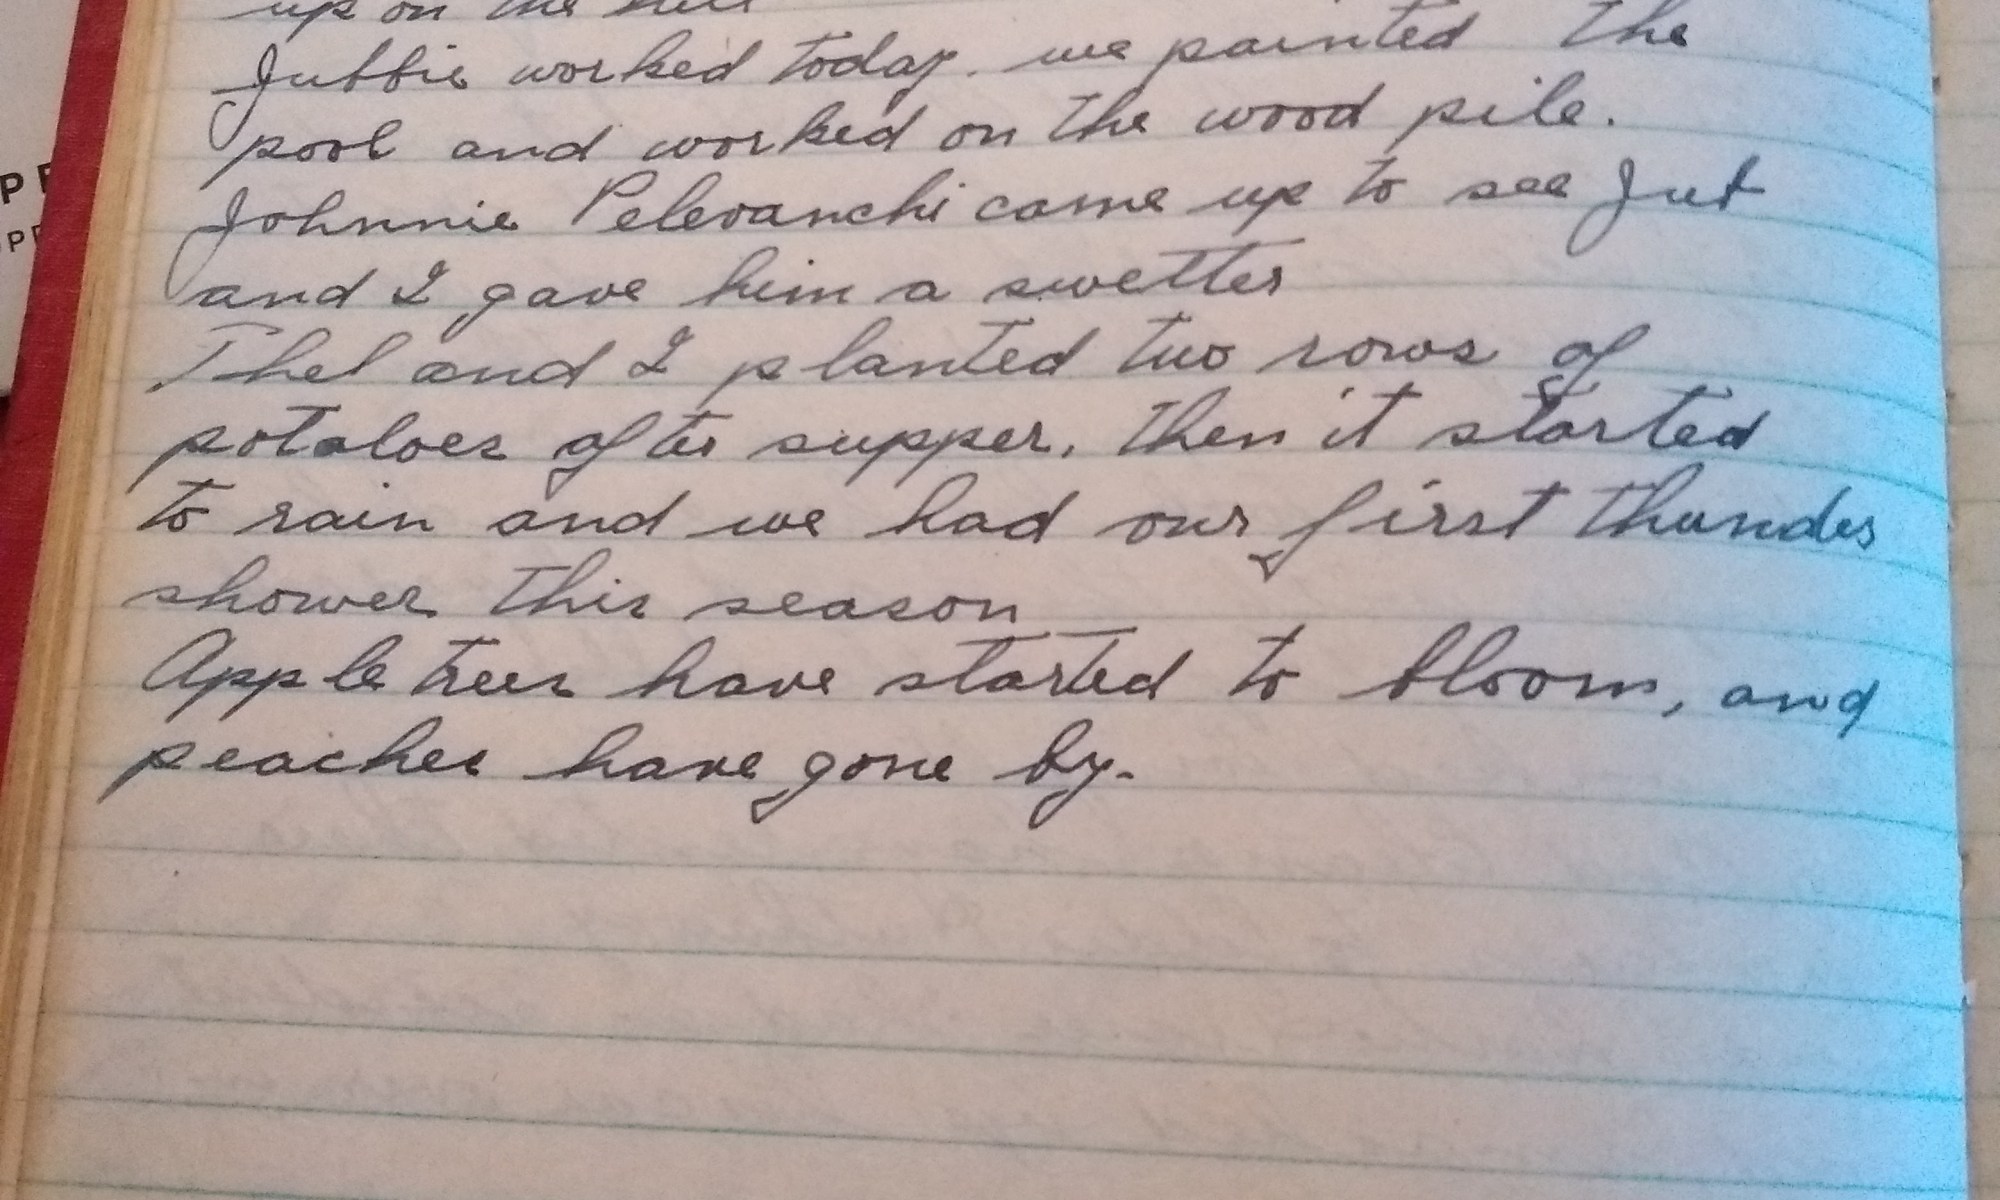 up on the hill
Jubbie worked today. we painted the
pool and worked on the wood pile.
Johnnie Pelevanchi came up to see Jut
and I gave him a swetter
Thel and I planted two rows of
potatoes after supper, then it started
to rain and we had our first thunder
shower this season
Apple trees have started to bloom, and
peaches have gone by.